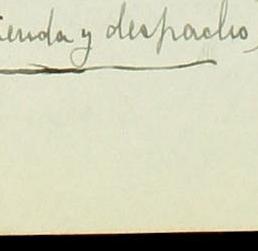 ienda y despacho,